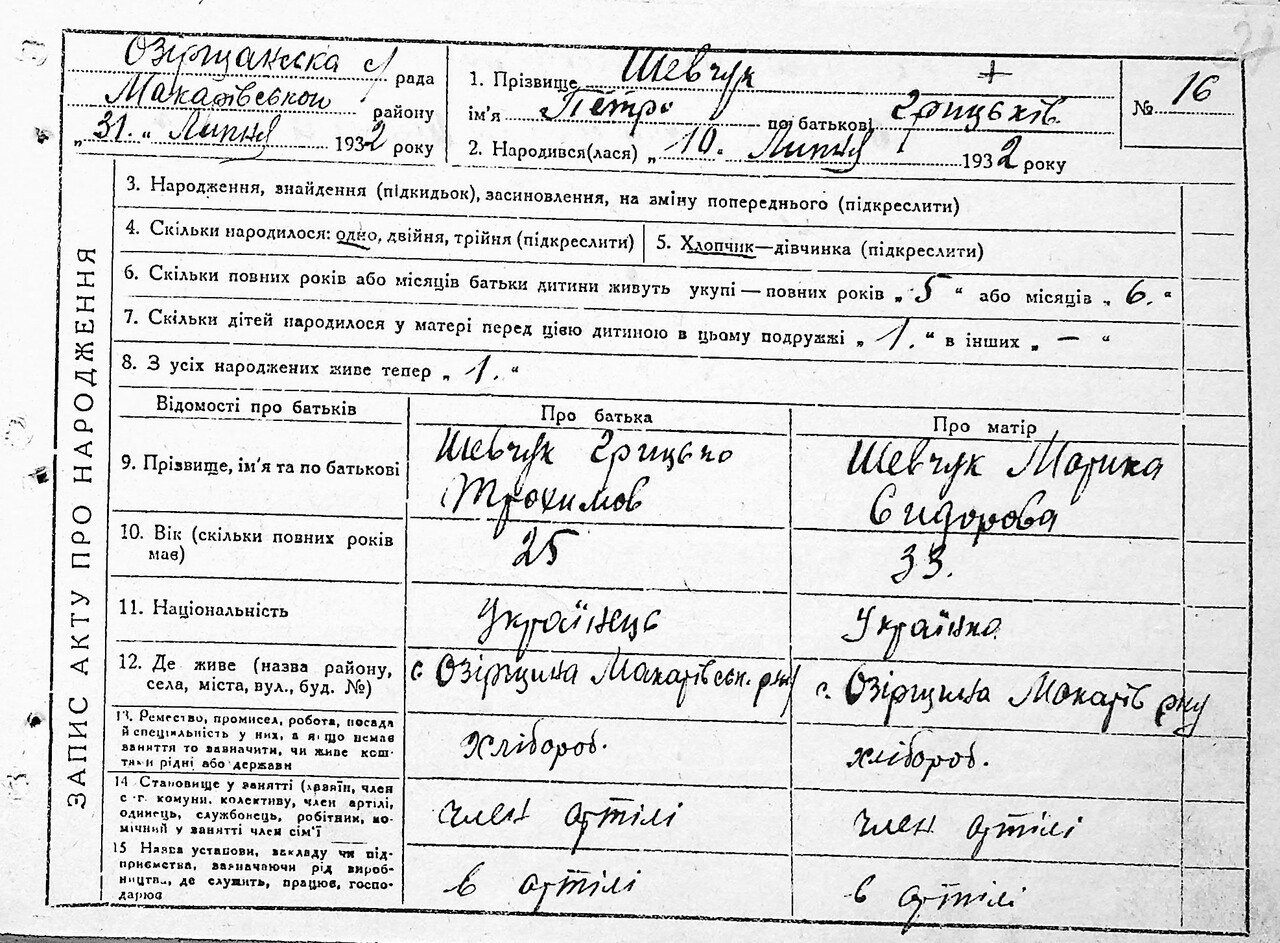 Озірщанська с/ рада
Макарівського району
„31." Липня 1932 року
1. Прізвище Шевчук +
ім'я Петро по батькові Грицьків.
2. Народився(лася) „10." Липня 1932 року
№ 16
ЗАПИС АКТУ ПРО НАРОДЖЕННЯ
3. Народження, знайдення (підкидьок), засиновлення, на зміну попереднього (підкреслити)
4. Скільки народилося: одно, двійня, трійня (підкреслити)
5. Хлопчик—дівчинка (підкреслити)
6. Скільки повних років або місяців батьки дитини живуть укупі—повних років „5" або місяців „6."
7. Скільки дітей народилося у матері перед цією дитиною в цьому подружжі „1." в інших „—"
8. З усіх народжених живе тепер „1."
Відомості про батьків
Про батька
Про матір
9. Прізвище, ім'я та по батькові
Шевчук Грицько
Трохимов
Шевчук Марика
Сидорова
10. Вік (скільки повних років
має)
25
33.
11. Національність
Українець
Українка
12. Де живе (назва району,
села, міста, вул., буд. №)
с Озірщина Макарівськ. рну
с. Озірщина Макарів рну
13. Ремество, промисел, робота, посада
й спеціяльність у них, а якщо немає
заняття то зазначити, чи живе кош-
тами рідні або держави
хлібороб.
хлібороб.
14 Становище у занятті (хазяїн, член
с.-г. комуни, колективу, член артілі,
одинець, службовець, робітник, по-
мічний у занятті член сім'ї
член артілі
член артілі
15 Назва установи, закладу чи під-
приємства, зазначаючи рід вироб-
ництва, де служить, працює, госпо-
дарює
в артілі
в артілі